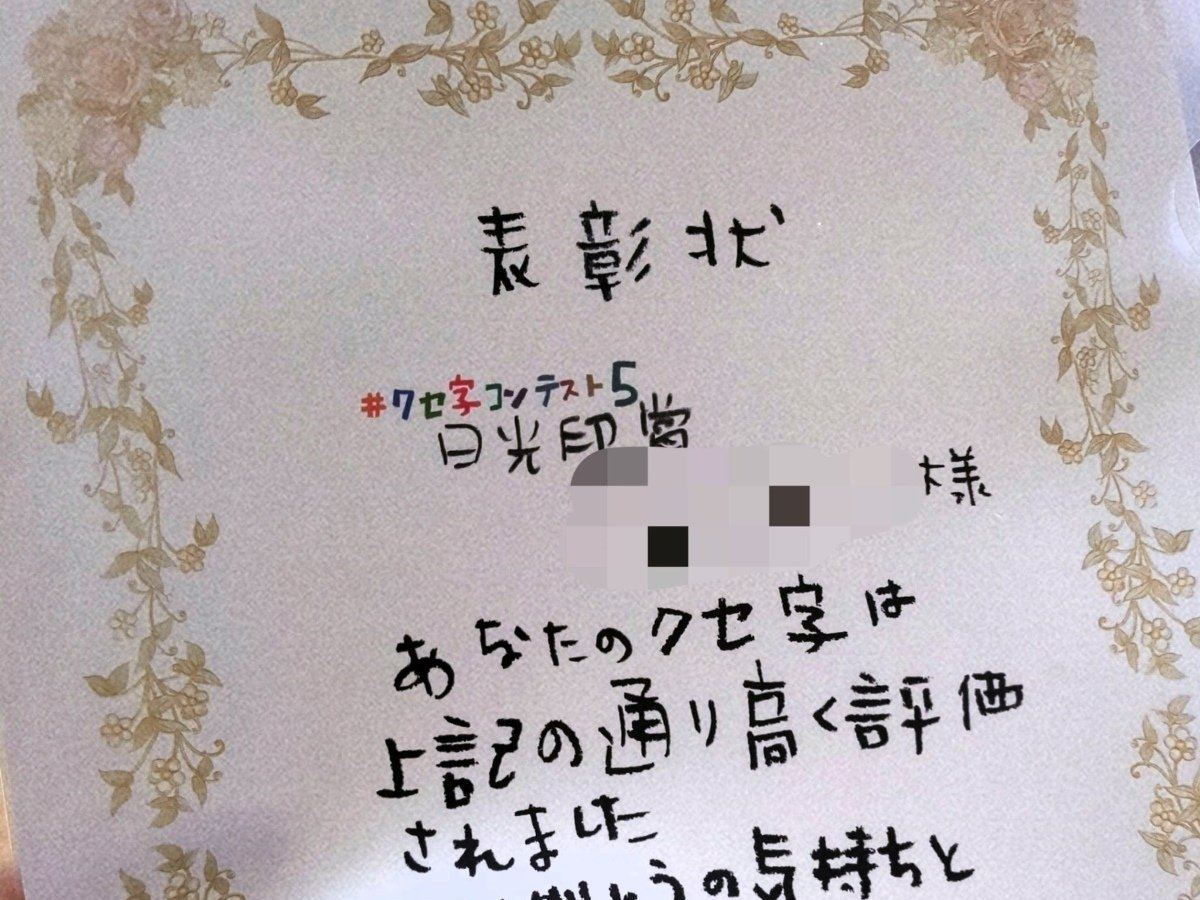 表彰状
#クセ字コンテスト5
日光印賞
様
あなたのクセ字は
上記の通り高く評価
されました
うの気持ちと